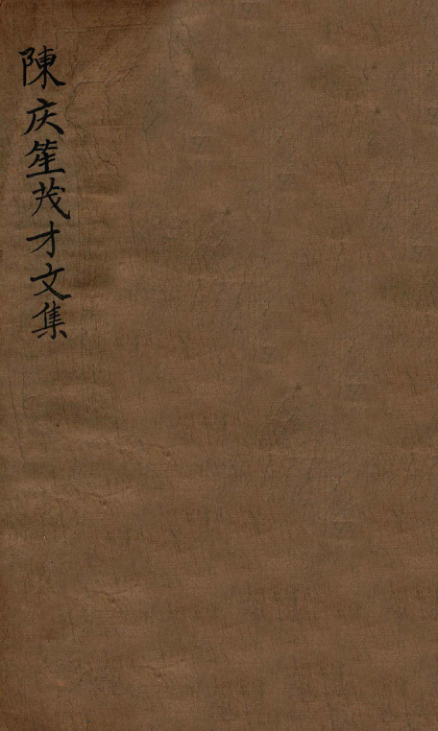 陳庆笙茂才文集